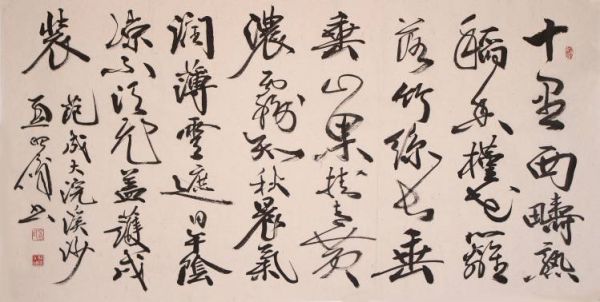 十里西疇熟
稻香槿花籬
落竹絲長垂
垂山果挂青黄
濃霧知秋晨氣
潤薄雲遮日午陰
凉不須飛蓋護戎
裝
范成大浣溪沙
書